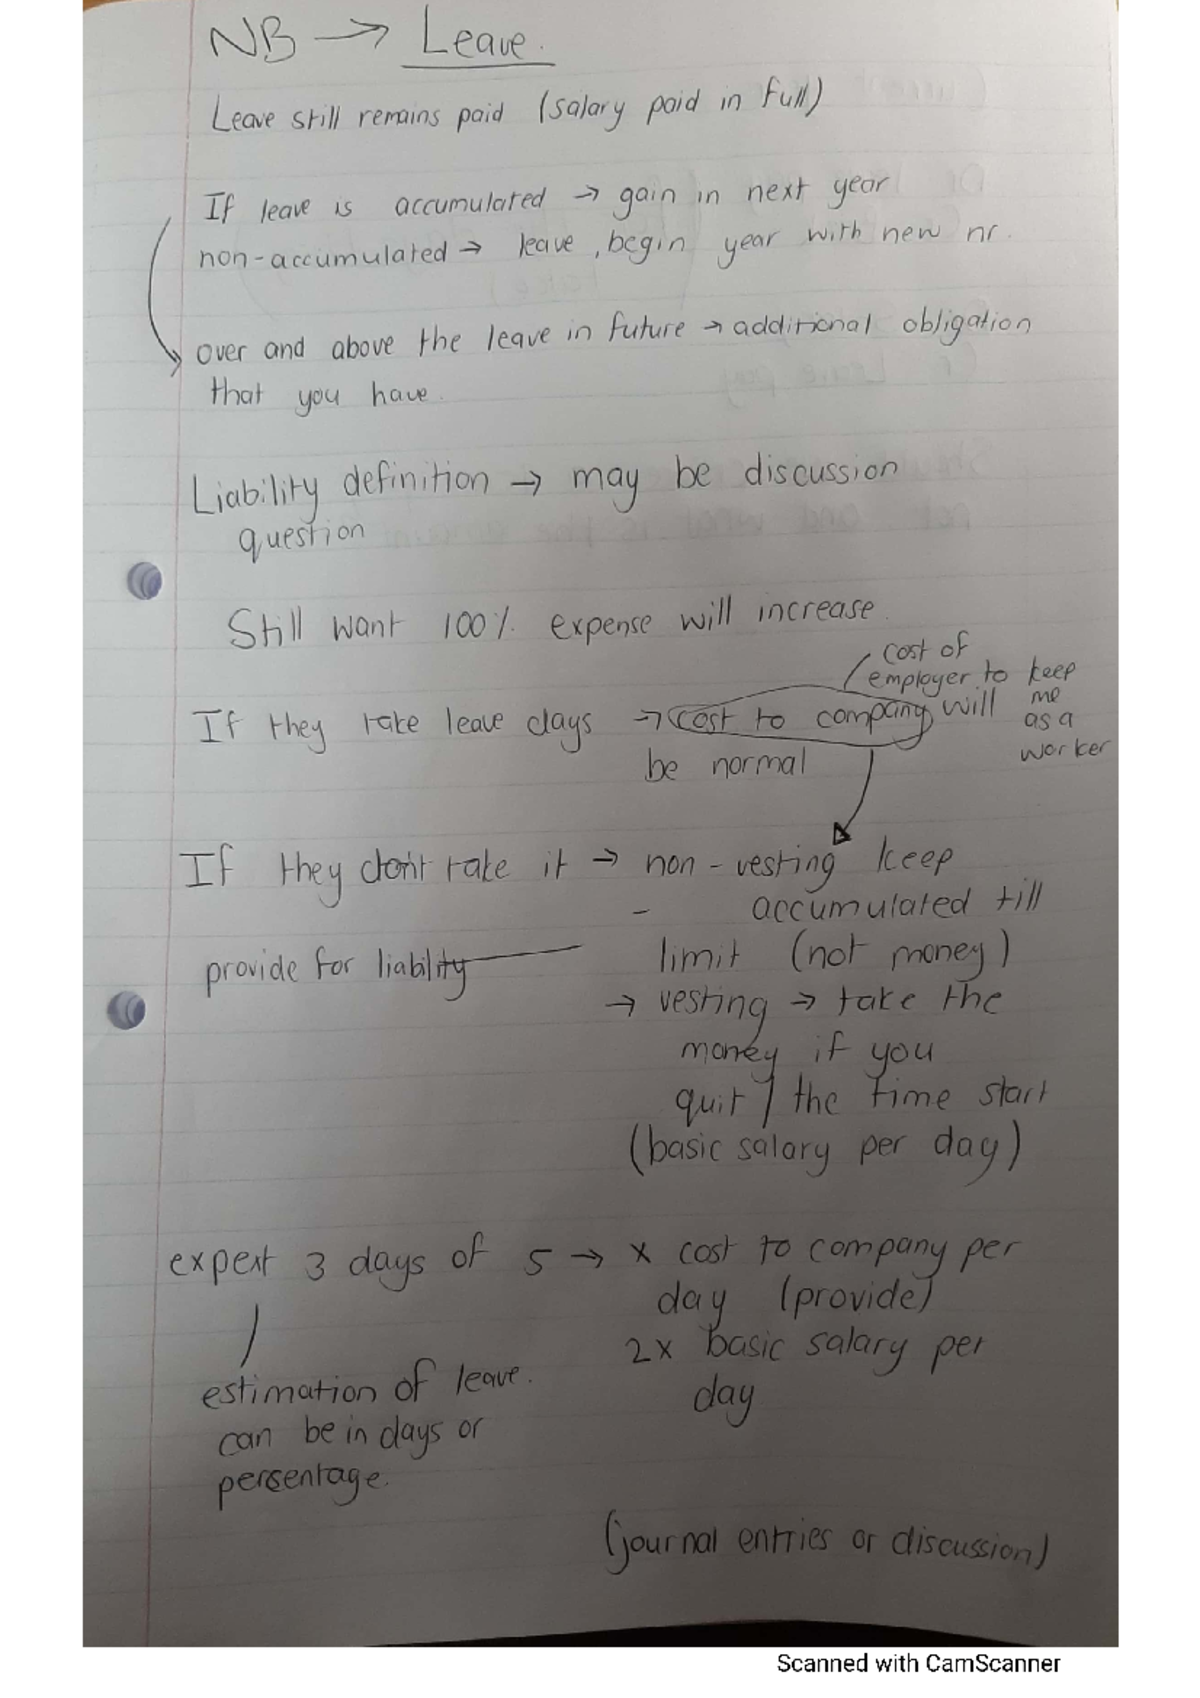 NB → Leave.
Leave still remains paid (salary paid in full)
If leave is accumulated → gain in next year
non-accumulated → leave, begin year with new nr.
over and above the leave in future → additional obligation
that you have.
Liability definition → may be discussion
question
Still want 100% expense will increase.
cost of
employer to keep
me
as a
worker
If they take leave days → cost to company will
be normal
If they don't take it → non-vesting keep
- accumulated till
provide for liability
limit (not money)
→ vesting → take the
money if you
quit / the time start
(basic salary per day)
expert 3 days of 5 → x cost to company per
day (provide)
2x basic salary per
day
estimation of leave.
can be in days or
persentage.
(journal entries or discussion)
Scanned with CamScanner